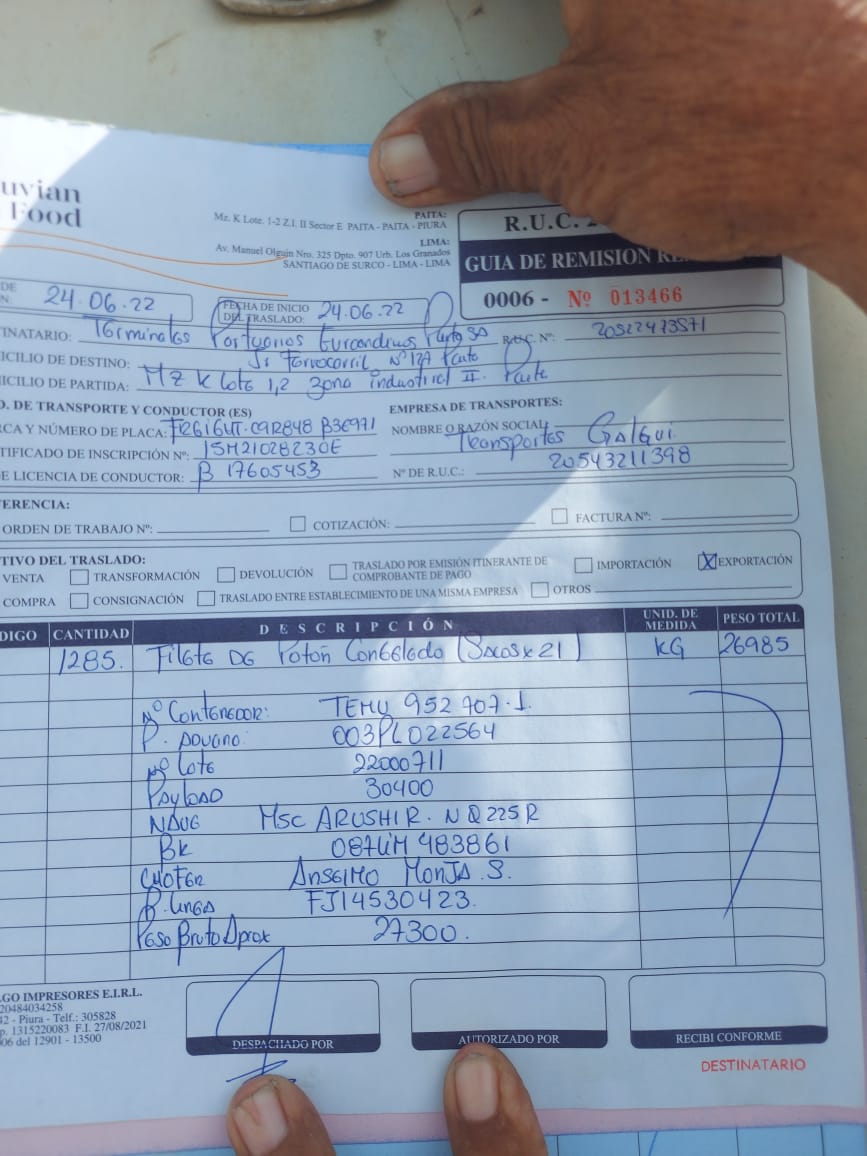 uvian
Food
Mz. K Lote. 1-2 Z.I. II Sector E PAITA - PAITA - PIURA
PAITA:
LIMA:
Av. Manuel Olguin Nro. 325 Dpto. 907 Urb. Los Granados
SANTIAGO DE SURCO - LIMA - LIMA
R.U.C. 2
GUIA DE REMISION RE
0006 - Nº 013466
DE
N: 24.06.22
FECHA DE INICIO DEL TRASLADO: 24.06.22
INATARIO: Terminales Portuarios Euroandinos Paita SA R.U.C. Nº: 20522473571
ICILIO DE DESTINO: Jr Ferrocarril Nº 127 Paita
ICILIO DE PARTIDA: Mz K Lote 1,2 Zona industrial II. Paita
D. DE TRANSPORTE Y CONDUCTOR (ES)
EMPRESA DE TRANSPORTES:
RCA Y NÚMERO DE PLACA: C9R848 B3E971
NOMBRE O RAZÓN SOCIAL: Transportes Galqui
TIFICADO DE INSCRIPCIÓN Nº: 15M21028230E
E LICENCIA DE CONDUCTOR: B 17605453
Nº DE R.U.C.: 20543211398
ERENCIA:
ORDEN DE TRABAJO Nº:
COTIZACIÓN:
FACTURA Nº:
TIVO DEL TRASLADO:
VENTA TRANSFORMACIÓN DEVOLUCIÓN TRASLADO POR EMISIÓN ITINERANTE DE COMPROBANTE DE PAGO IMPORTACIÓN X EXPORTACIÓN
COMPRA CONSIGNACIÓN TRASLADO ENTRE ESTABLECIMIENTO DE UNA MISMA EMPRESA OTROS
DIGO CANTIDAD DESCRIPCIÓN UNID. DE MEDIDA PESO TOTAL
1285. Filete De Poton Congelado (Sacos x 21) KG 26985
Nº Contenedor: TEMU 952 707.1.
P. Aduana: 003PL022564
Nº Lote 22000711
Payload 30400
Nave MSC ARUSHI R. NQ225R
BK 087LIM483861
Chofer Anselmo Monja S.
P. Linea FJ14530423.
Peso Bruto Aprox 27300.
GO IMPRESORES E.I.R.L.
20484034258
42 - Piura - Telf.: 305828
p. 1315220083 F.I. 27/08/2021
06 del 12901 - 13500
DESPACHADO POR
AUTORIZADO POR
RECIBI CONFORME
DESTINATARIO